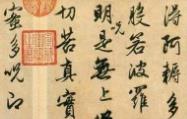 得阿耨多
般若波羅
明咒是無上
切苦真實
蜜多呪即